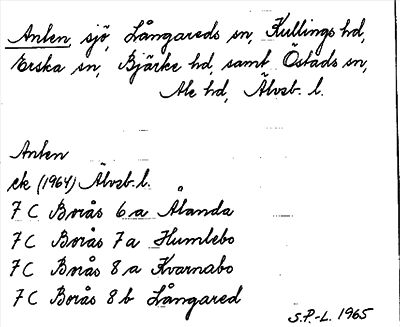 Anten, sjö, Långareds sn, Kullings hd,
Erska sn, Bjärke hd, samt Östads sn,
Ale hd, Älvsb. l.
Anten
ek (1964) Älvsb. l.
7 C Borås 6 a Ålanda
7 C Borås 7 a Humlebo
7 C Borås 8 a Kvarnabo
7 C Borås 8 b Långared
S.P.-L. 1965